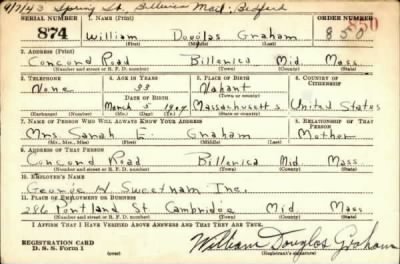 9/7/43 Spring St, Billerica Mail: Bedford
SERIAL NUMBER 1. NAME (Print) ORDER NUMBER
874 William Douglas Graham 850 850
(First) (Middle) (Last)
2. ADDRESS (Print)
Concord Road Billerica Mid Mass.
(Number and street or R. F. D. number) (Town) (County) (State)
3. TELEPHONE 4. AGE IN YEARS 5. PLACE OF BIRTH 6. COUNTRY OF CITIZENSHIP
None 33 Nahant
DATE OF BIRTH (Town or county)
March 5 1907 Massachusetts United States
(Exchange) (Number) (Mo.) (Day) (Yr.) (State or country)
7. NAME OF PERSON WHO WILL ALWAYS KNOW YOUR ADDRESS 8. RELATIONSHIP OF THAT PERSON
Mrs. Sarah E. Graham Mother
(Mr., Mrs., Miss) (First) (Middle) (Last)
9. ADDRESS OF THAT PERSON
Concord Road Billerica Mid Mass.
(Number and street or R. F. D. number) (Town) (County) (State)
10. EMPLOYER'S NAME
George H Sweetnam Inc.
11. PLACE OF EMPLOYMENT OR BUSINESS
286 Portland St Cambridge Mid Mass
(Number and street or R. F. D. number) (Town) (County) (State)
I AFFIRM THAT I HAVE VERIFIED ABOVE ANSWERS AND THAT THEY ARE TRUE.
REGISTRATION CARD
D. S. S. Form 1 (over) William Douglas Graham
(Registrant's signature)